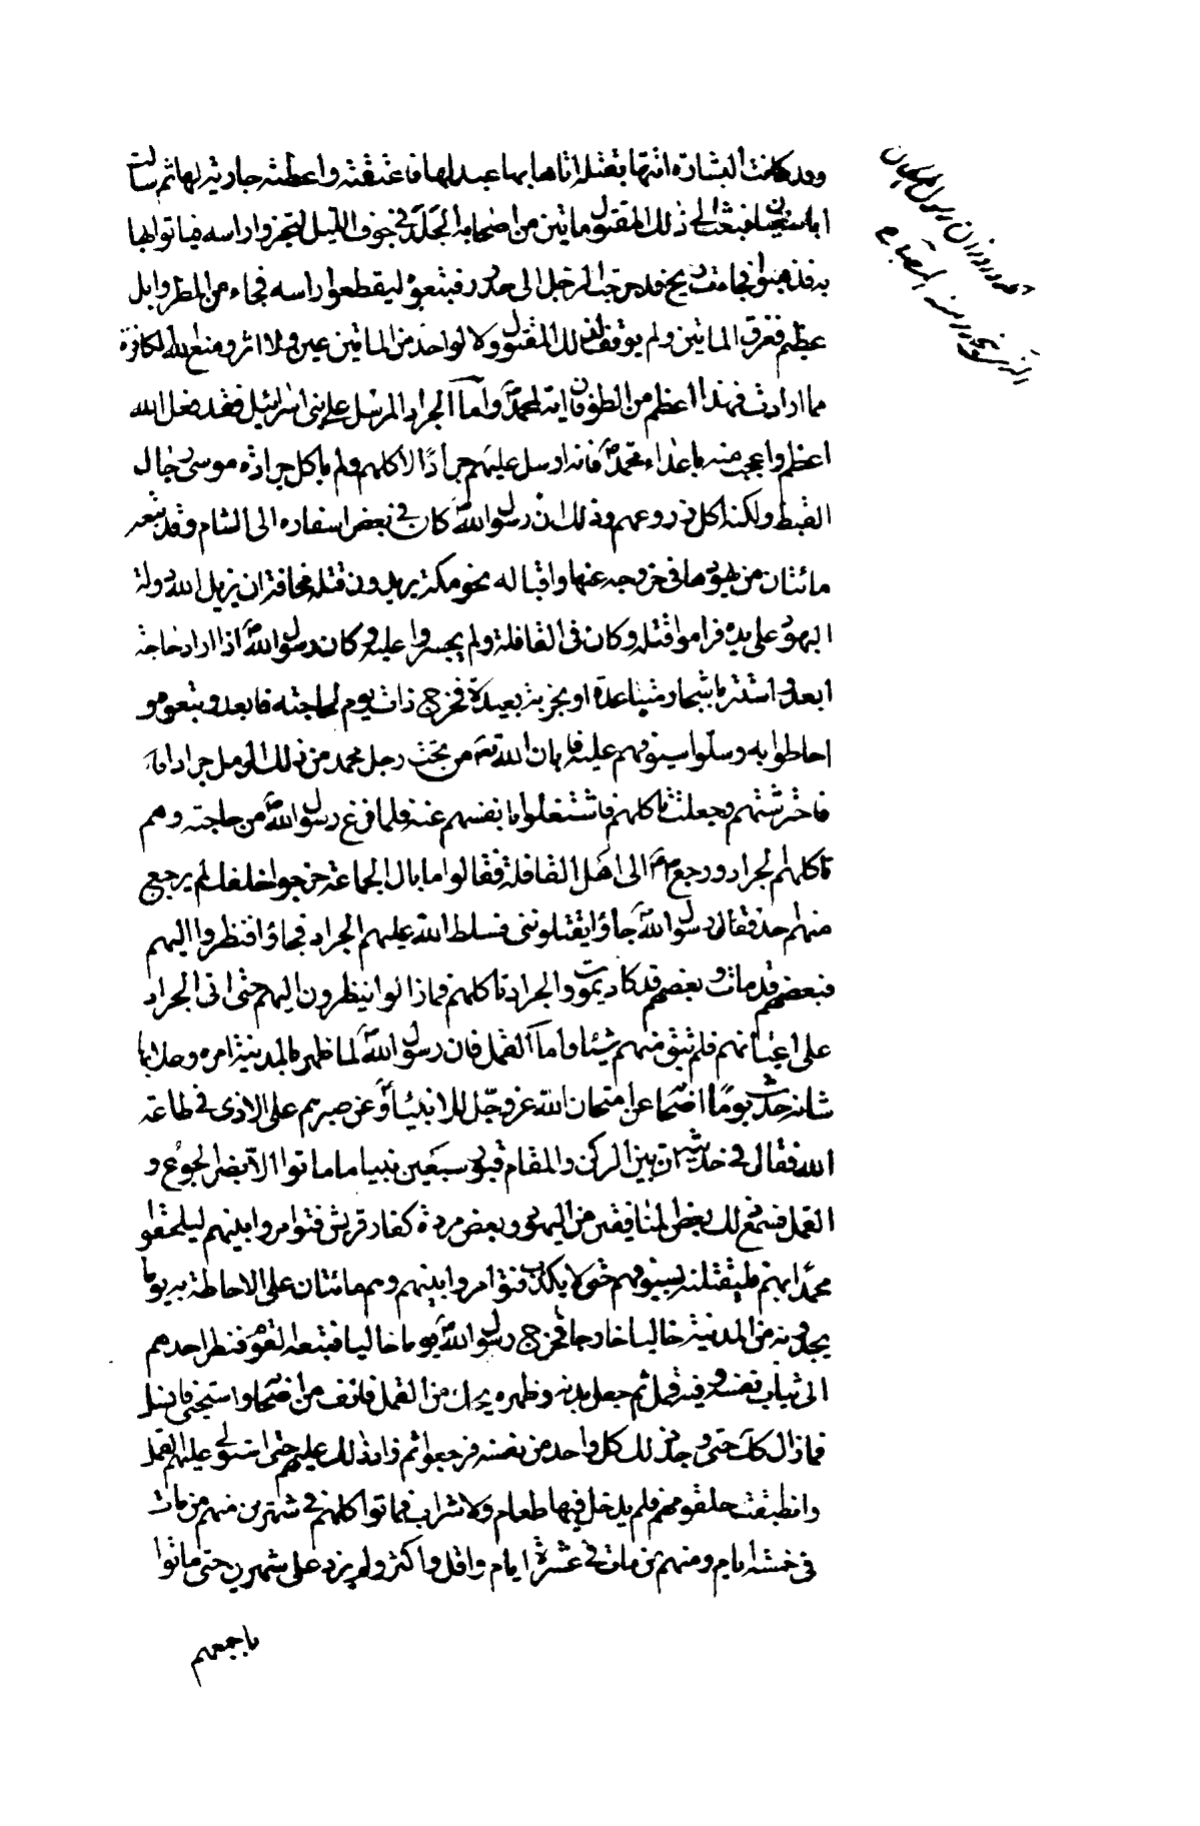 وقد كانت البشارة اتتها بقتله اتاها بها عبد لها فاعتقته واعطته جارية لها ثم سالت
ابا سفيان فبعث الى ذلك المقتول ماتين من اصحابه الجلد في جوف الليل لتجتزوا راسه فياتوا لها
به فذهبوا فجاءت ريح فدحرجت الرجل الى حدور فتبعوه ليقطعوا راسه فجاء من المطر وابل
عظيم فغرق الماتين ولم يوقف لذلك المقتول ولا لواحد من الماتين عين ولا اثر ومنع الله الكافرة
مما ارادت فهذا اعظم من الطوفان اية لمحمد واما الجراد المرسل على بنى اسرائيل فقد فعل الله
اعظم واعجب منه باعداء محمد فانه ارسل عليهم جرادا لاكلهم ولم ياكل جرادة موسى رجال
القبط ولكنه اكل زروعهم وذلك ان رسول الله كان في بعض اسفاره الى الشام وقد تبعه
مائتان من يهودها في خروجه عنها واقباله نحو مكة يريدون قتله مخافة ان يزيل الله دولة
اليهود على يده فراموا قتله وكان في القافلة ولم يجسروا عليه وكان رسول الله اذا اراد حاجة
ابعد واستتر باشجار متباعدة او بخربة بعيدة فخرج ذات يوم لحاجته فابعد وتبعوه و
احاطوا به وسلوا سيوفهم عليه فابان الله تع من تحت رجل محمد من ذلك الرمل جرادا
فاحترشتهم وجعلت تاكلهم فاشتغلوا بانفسهم عنه فلما فرغ رسول الله من حاجته وهم
تاكلهم الجراد ورجع الى اهل القافلة فقالوا ما بال الجماعة خرجوا خلفك لم يرجع
منهم احد فقال رسول الله جاؤا يقتلوننى فسلط الله عليهم الجراد فجاؤا فنظروا اليهم
فبعضهم قد مات وبعضهم قد كاد يموت والجراد تاكلهم فما زالوا ينظرون اليهم حتى اتى الجراد
على اعيانهم فلم تبق منهم شيئا واما القمل فان رسول الله لما ظهر بالمدينة امره وعلا بها
شانه حدث يوما اصحابه عن امتحان الله عز وجل للانبياء وعن صبرهم على الاذى في طاعة
الله فقال في حديثه ان بين الركن والمقام قبور سبعين نبيا ما ماتوا الا بضر الجوع و
القمل فسمع ذلك بعض المنافقين من اليهود وبعض مردة كفار قريش فتوامروا بينهم ليلحقوا
محمدا بهم فليقتلنه بسيوفهم حتى لا يكذب فتوامروا بينهم وهم مائتان على الاحاطة به يوما
يجدونه من المدينة خاليا خارجا فخرج رسول الله يوما خاليا فتبعه القوم فنظر احدهم
الى ثياب نفسه وفيه قمل ثم جعل بدنه وظهره يحك من القمل فانف من اصحابه واستحيى فانسل
فما زال كذلك حتى وجد ذلك كل واحد من نفسه فرجعوا ثم زاد ذلك عليهم حتى استولى عليهم القمل
وانطبقت حلقومهم فلم يدخل فيها طعام ولا شراب فماتوا كلهم في شهرين منهم من مات
في خمسة ايام ومنهم من مات في عشرة ايام واقل واكثر ولم يزد على شهرين حتى ماتوا
باجمعهم